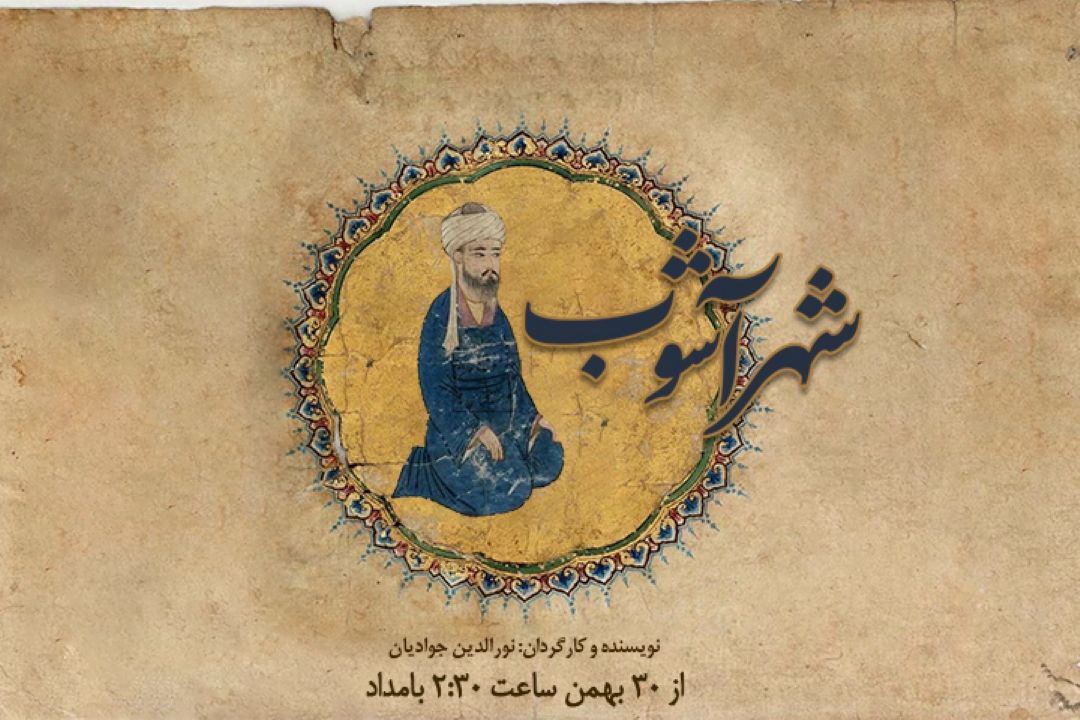 شهرآشوب
نویسنده و کارگردان: نورالدین جوادیان
از ۳۰ بهمن ساعت ۲:۳۰ بامداد